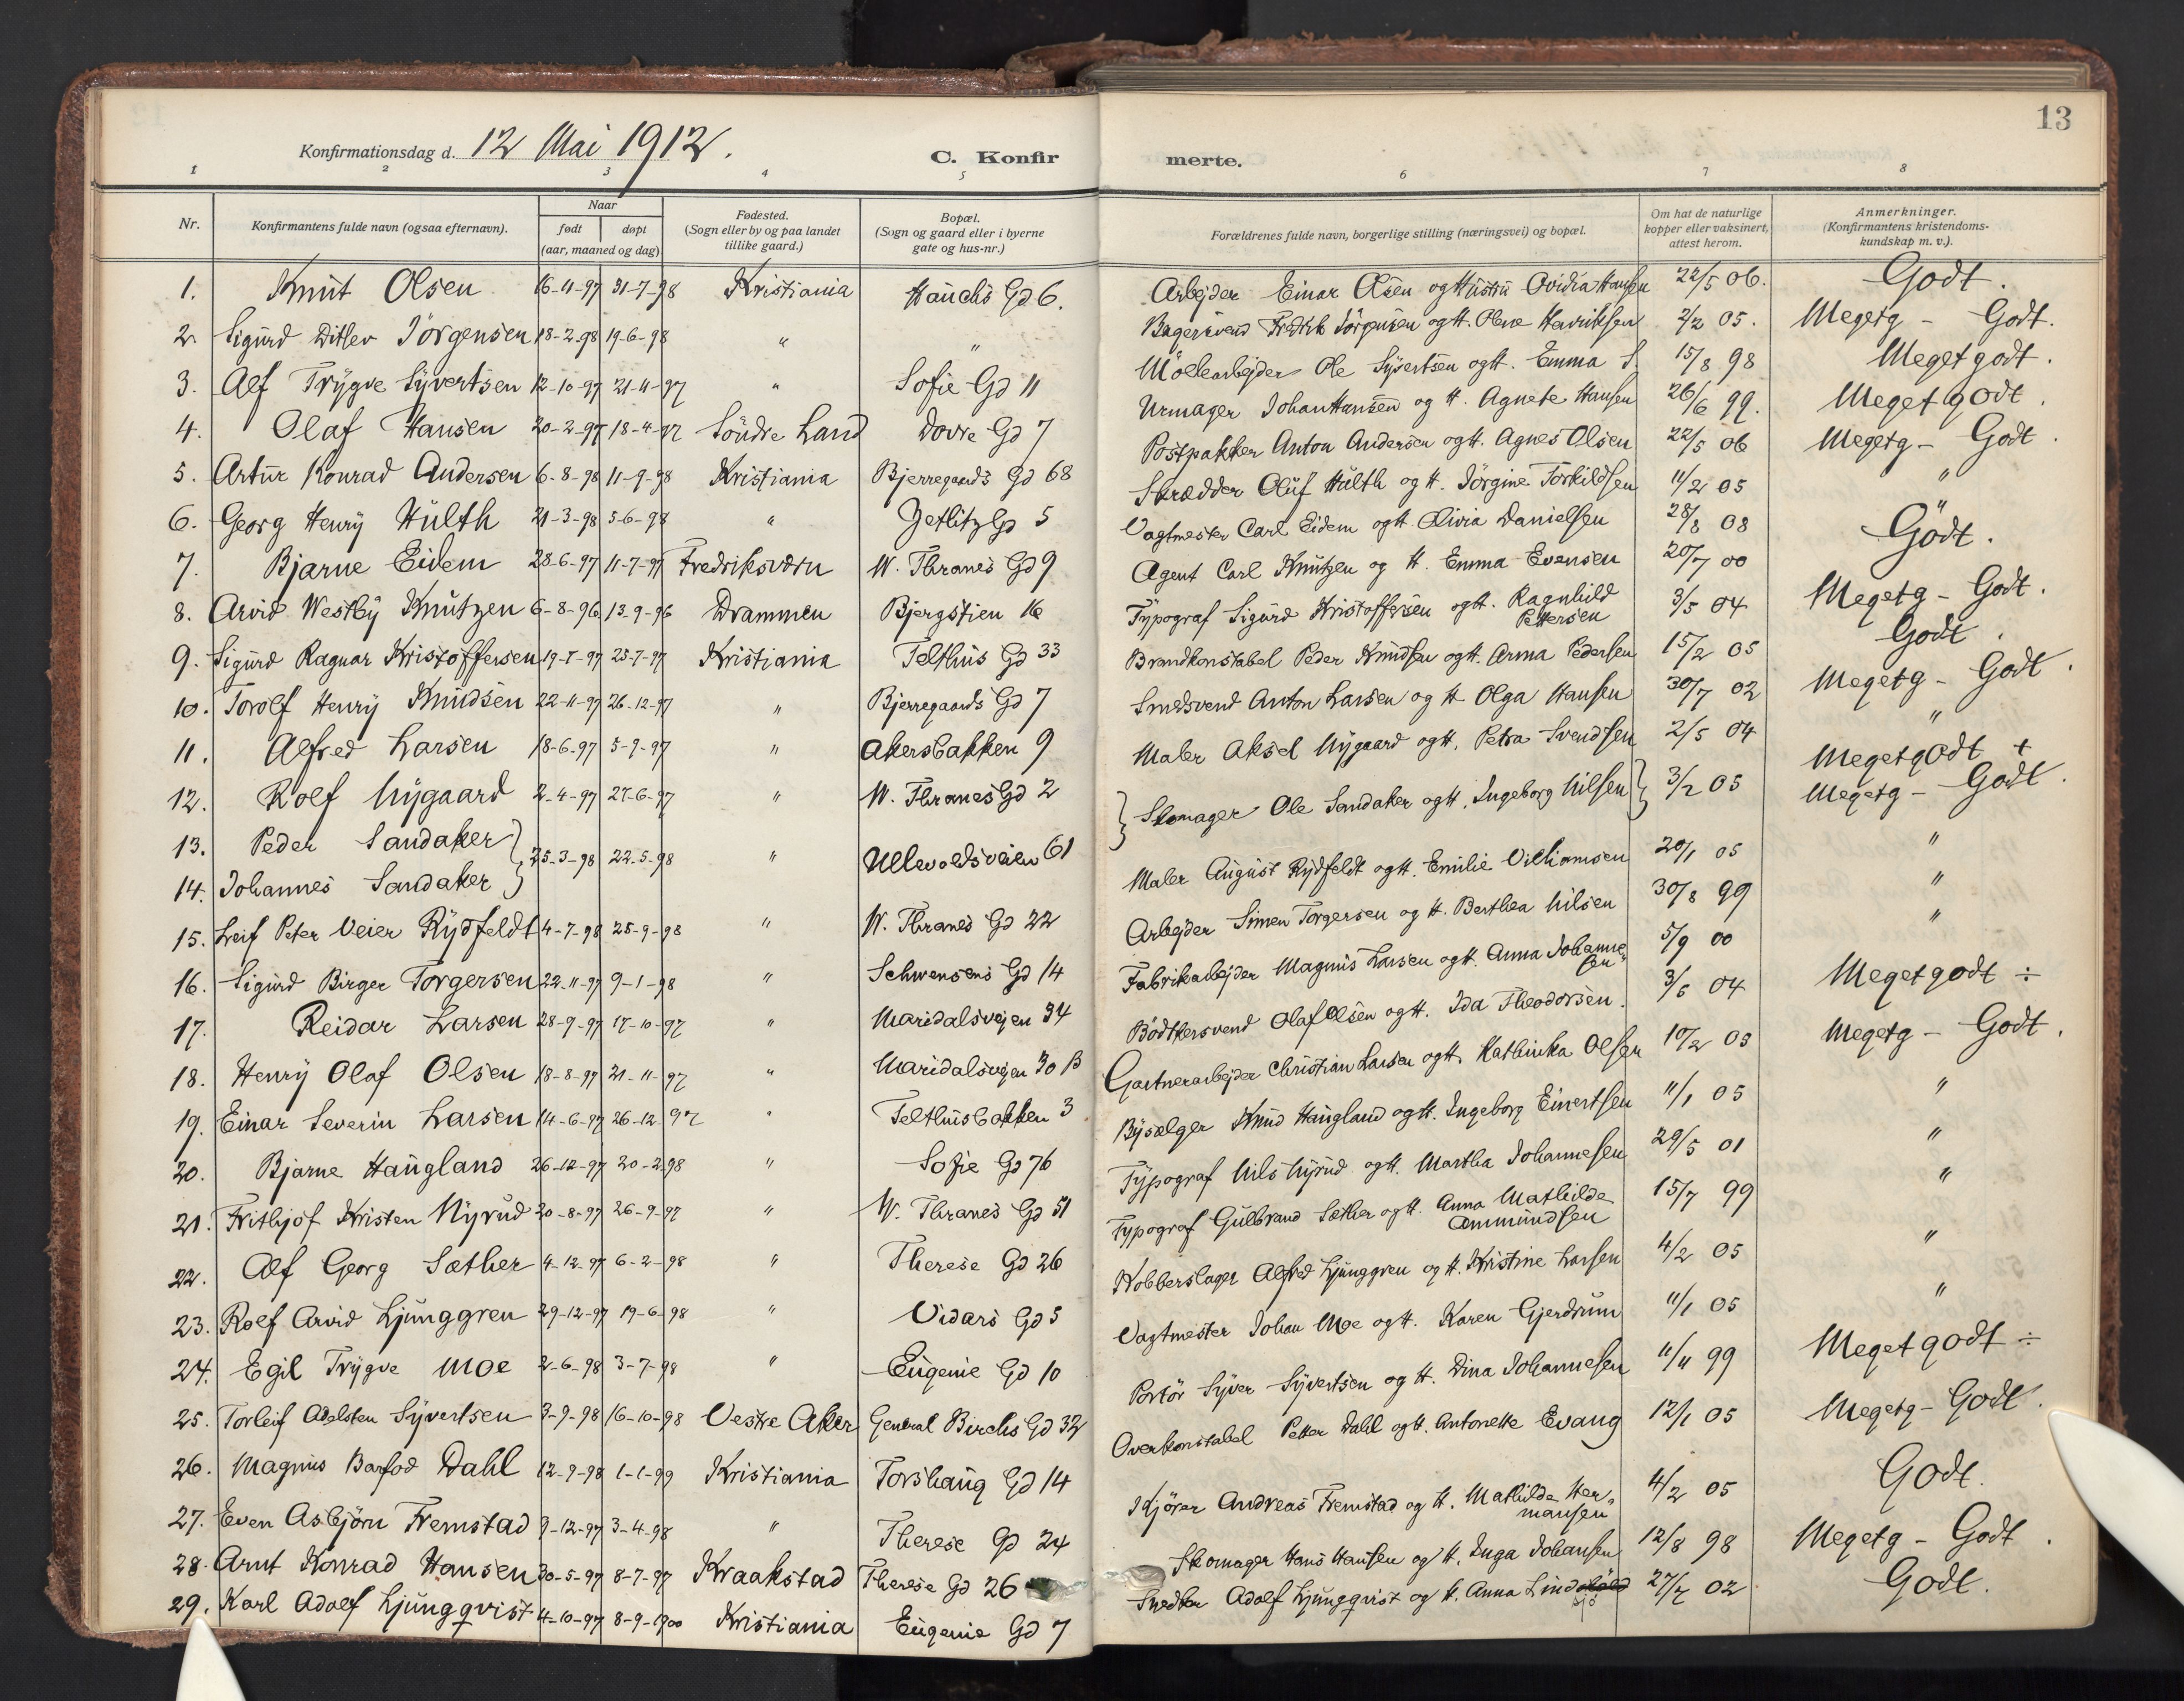 13
Konfirmationsdag d. 12 Mai 1912.
C. Konfir
merte.
1 2 3 4 5 6 7 8
Nr. Konfirmantens fulde navn (ogsaa efternavn). Naar født døpt (aar, maaned og dag) Fødested. (Sogn eller by og paa landet tillike gaard.) Bopæl. (Sogn og gaard eller i byerne gate og hus-nr.)
Forældrenes fulde navn, borgerlige stilling (næringsvei) og bopæl. Om hat de naturlige kopper eller vaksinert, attest herom. Anmerkninger. (Konfirmantens kristendoms-kundskap m. v.).
1. Knut Olsen 16-11-97 31-7-98 Kristiania Hauchs Gd 6.
2. Sigurd Ditlev Jörgensen 18-2-98 19-6-98 " "
3. Alf Trygve Syvertsen 12-10-97 21-11-97 " Sofie Gd 11
4. Olaf Hansen 20-2-97 18-4-97 Söndre Land Dovre Gd 7
5. Artur Konrad Andersen 6-8-98 11-9-98 Kristiania Bjerregaards Gd 68
6. Georg Henry Hulth 21-3-98 5-6-98 " Jetlitz Gd 5
7. Bjarne Eidem 28-6-97 11-7-97 Fredriksværn W. Thranes Gd 9
8. Arvid Westby Knutzen 6-8-96 13-9-96 Drammen Bjergstien 16
9. Sigurd Ragnar Kristoffersen 25-7-97 Kristiania Telthus Gd 33
10. Torolf Henry Knudsen 22-11-97 26-12-97 " Bjerregaards Gd 7
11. Alfred Larsen 18-6-97 5-9-97 " Akersbakken 9
12. Rolf Nygaard 2-4-97 27-6-97 " W. Thranes Gd 2
13. Peder Sandaker
14. Johannes Sandaker } 25-3-98 22-5-98 " Ullevoldsveien 61
15. Leif Peter Veier Rydfeldt 4-7-98 25-9-98 " W. Thranes Gd 22
16. Sigurd Birger Torgersen 22-11-97 9-1-98 " Schwensens Gd 14
17. Reidar Larsen 28-9-97 17-10-97 " Maridalsvejen 34
18. Henry Olaf Olsen 18-8-97 21-11-97 " Maridalsvejen 30 B
19. Einar Severin Larsen 14-6-97 26-12-97 " Telthusbakken 3
20. Bjarne Haugland 26-12-97 20-2-98 " Sofie Gd 76
21. Frithjof Kristen Nyrud 20-8-97 26-9-97 " W. Thranes Gd 51
22. Alf Georg Sæther 4-12-97 6-2-98 " Therese Gd 26
23. Rolf Arvid Ljunggren 29-12-97 19-6-98 " Vidars Gd 5
24. Egil Trygve Moe 2-6-98 3-7-98 " Eugenie Gd 10
25. Torleif Adelsten Syvertsen 3-9-98 16-10-98 Vestre Aker General Birchs Gd 32
26. Magnus Barfod Dahl 12-9-98 1-1-99 Kristiania Torshaug Gd 14
27. Even Asbjörn Fremstad 9-12-97 3-4-98 " Therese Gd 24
28. Arnt Konrad Hansen 30-5-97 8-7-97 Kraakstad Therese Gd 26
29. Karl Adolf Ljungqvist 4-10-97 8-9-1900 Kristiania Eugenie Gd 7
Arbejder Einar Olsen og Hustru Ovidia Hansen 22/5 06. Godt.
Bagersvend Fredrik Jörgensen og H. Olene Henriksen 2/2 05. Megetg - Godt.
Möllearbejder Ole Syvertsen og H. Emma S. 15/8 98 Megetgodt.
Urmager Johan Hansen og H. Agnete Hansen 26/6 99. Megetgodt.
Postpakker Anton Andersen og H. Agnes Olsen 22/5 06 Megetg - Godt.
Skrædder Oluf Hulth og H. Jörgine Torkildsen 11/2 05 "
Vagtmester Carl Eidem og H. Olivia Danielsen 28/8 08 Godt.
Agent Carl Knutzen og H. Emma Evensen 20/7 00
Typograf Sigurd Kristoffersen og H. Ragnhild Pettersen 3/5 04 Megetg - Godt.
Brandkonstabel Peder Knudsen og H. Anna Pedersen 15/2 05 Godt.
Smedsvend Anton Larsen og H Olga Hansen 30/7 02 Megetg - Godt.
Maler Aksel Nygaard og H. Petra Svendsen 2/5 04 "
} Skomager Ole Sandaker og H. Ingeborg Nilsen } 3/2 05 Megetgodt +
Megetg - Godt.
Maler August Rydfeldt og H. Emilie Villiamsen 20/1 05 "
Arbejder Simen Torgersen og H. Berthea Nilsen 30/8 99 "
Fabrikarbejder Magnus Larsen og H. Anna Johannesen 5/9 00 "
Bödkersvend Olaf Olsen og H. Ida Theodorsen. 3/5 04 Megetgodt ÷
Gartnerarbejder Christian Larsen og H. Kathinka Olsen 10/2 05 Megetg - Godt.
Bysælger Knud Haugland og H. Ingeborg Einertsen 11/1 05 "
Typograf Nils Nyrud og H. Martha Johannesen 29/5 01 "
Typograf Gulbrand Sæther og H. Anna Mathilde Ammundsen 15/7 99 "
Kobberslager Alfred Ljunggren og H. Kristine Larsen 4/2 05 "
Vagtmester Johan Moe og H. Karen Gjerdrum 11/1 05 "
Portör Syver Syvertsen og H. Dina Johannesen 11/11 99 Megetgodt ÷
Overkonstabel Petter Dahl og H. Antonette Evang 12/1 05 Megetg - Godt.
Kjörer Andreas Fremstad og H. Mathilde Hermansen 4/2 05 Godt.
Skomager Hans Hansen og H. Inga Johansen 12/8 98 Megetg - Godt.
Snedker Adolf Ljungqvist og H. Anna Lindsjö 27/7 02 Godt.